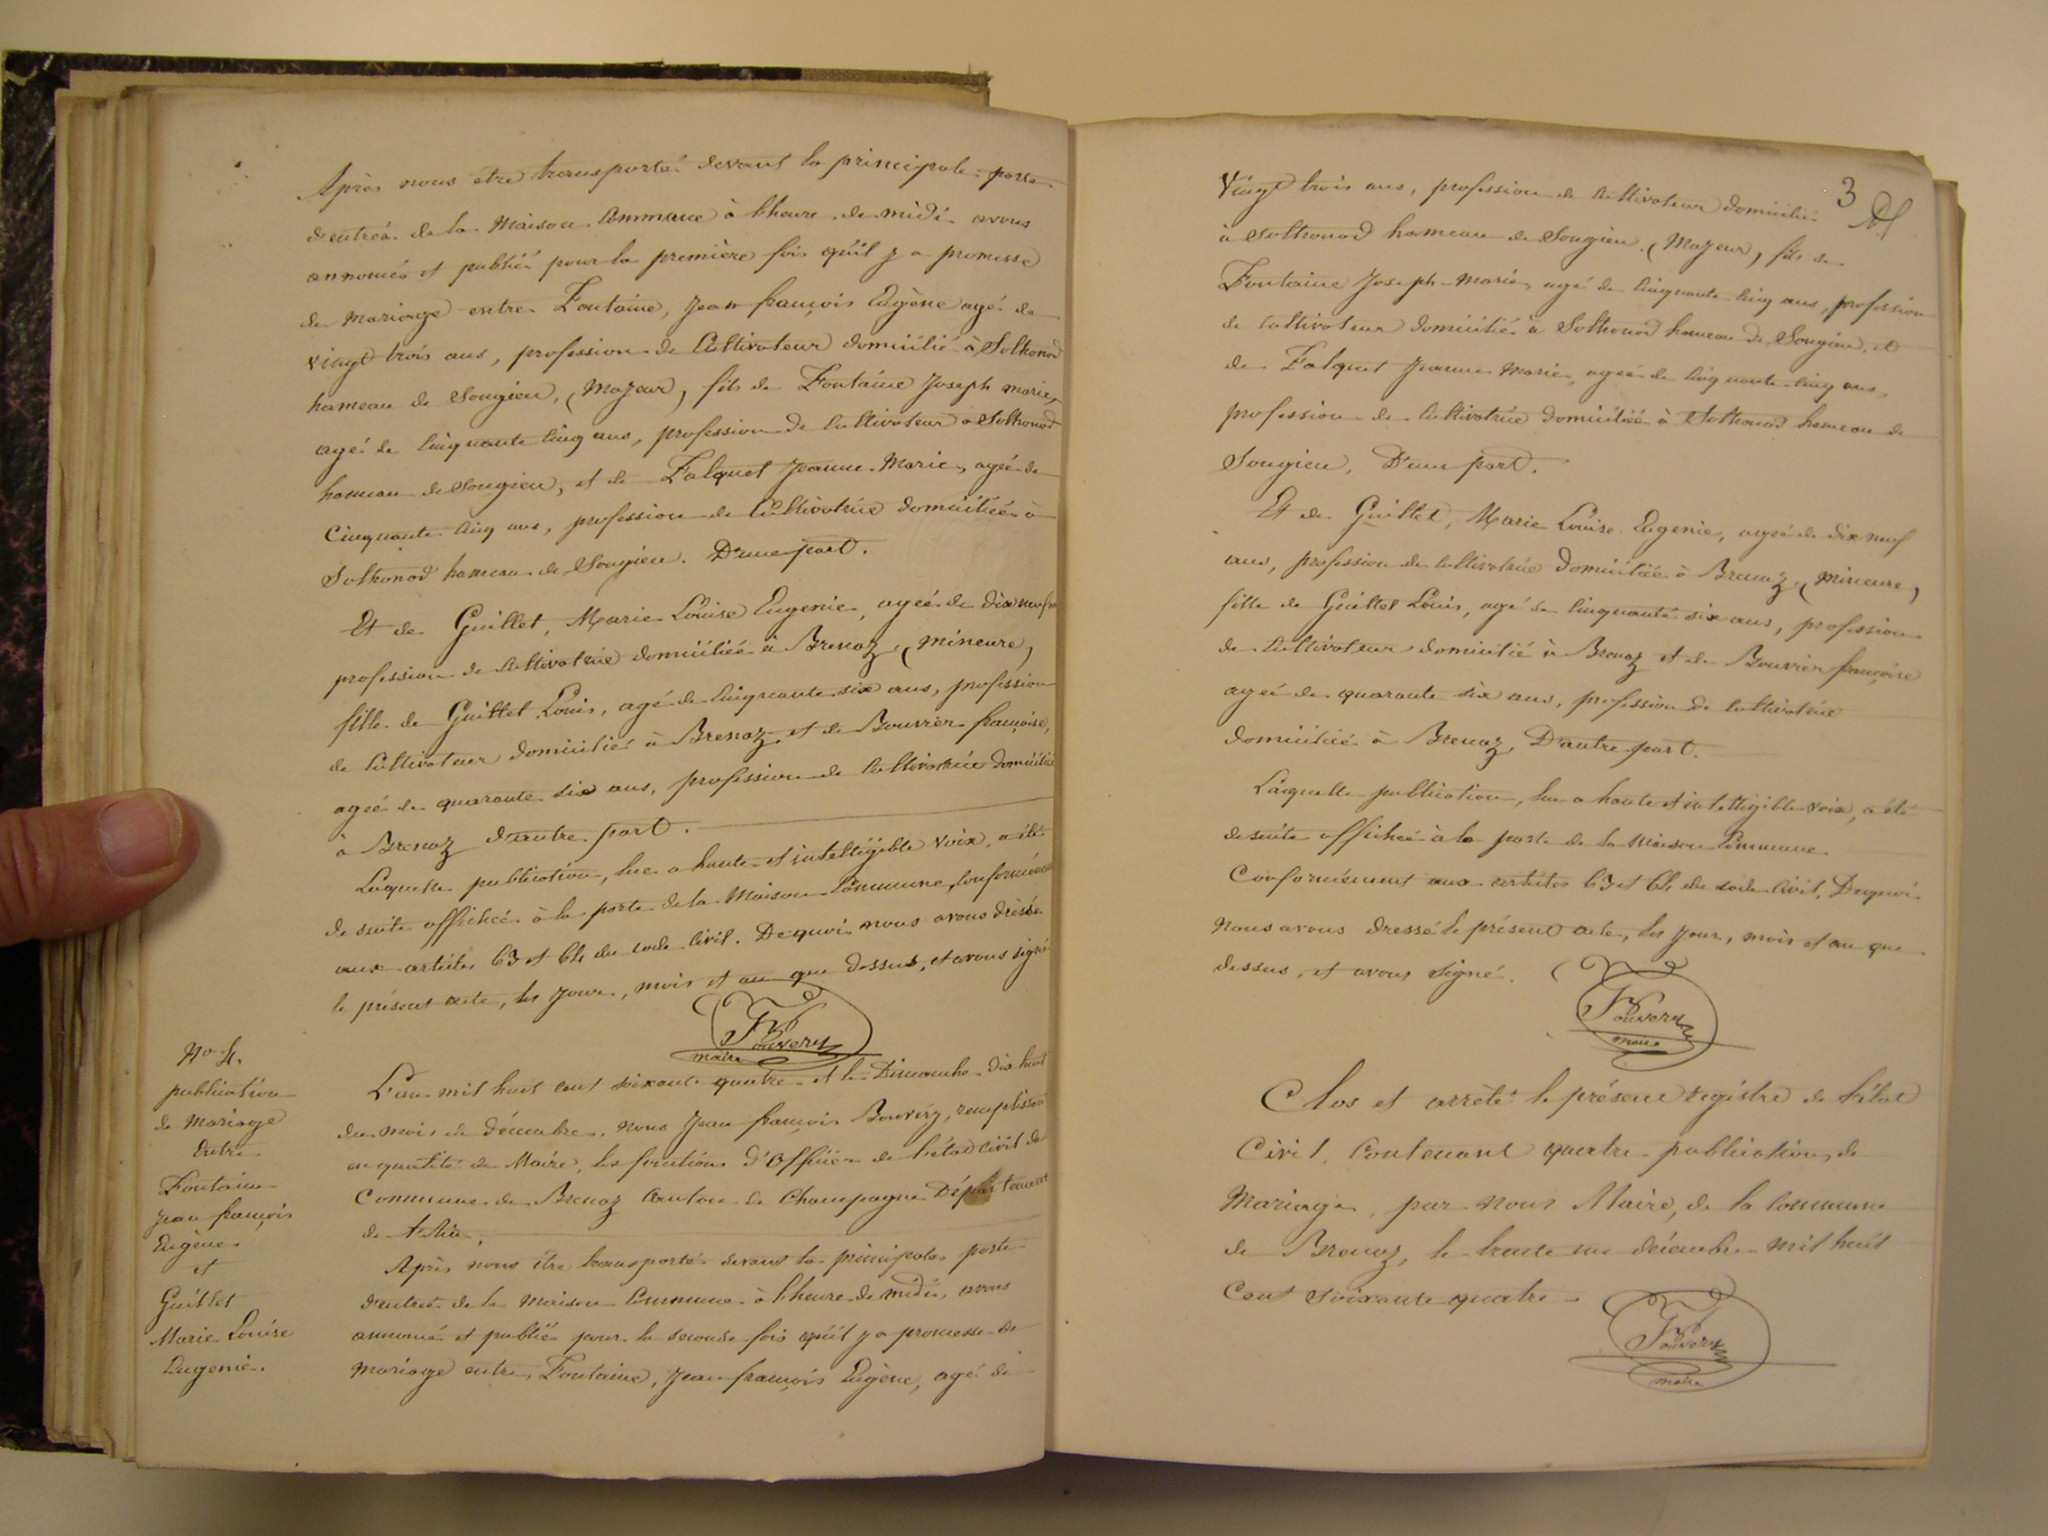 Après nous etre transporté devant la principale porte
d'entrée de la Maison Commune à l'heure de midi avons
annoncés et publié pour la première fois qu'il y a promesse
de Mariage entre Fontaine, Jean françois Eugène agé de
vingt trois ans, profession de Cultivateur domicilié à Sothonod
hameau de Songieu, (Majeur, fils de Fontaine Joseph marie,
agé de Cinquante Cinq ans, profession de Cultivateur à Sothonod
hameau de Songieu, et de Falquet Jeanne Marie, agée de
Cinquante Cinq ans, profession de Cultivatrice domiciliée à
Sothonod hameau de Songieu. D'une part.
Et de Guillet, Marie Louise Eugenie, agée de dix neuf
profession de Cultivatrice domiciliée à Brenaz, (mineure,
fille de Guillet Louis, agé de Cinquante six ans, profession
de Cultivateur domicilié à Brenaz et de Bouvier françoise,
agée de quarante six ans, profession de Cultivatrice domiciliée
à Brenaz d'autre part.
Laquelle publication, lue a haute et intelligible voix, a été
de suite affichée à la porte de la Maison Commune, Conformément
aux articles 63 et 64 du code Civil. De quoi nous avons dressé
le présent acte, les jour, mois et an que dessus, et avons signé
JF Bouvery
maire
No 4.
publication
de Mariage
Entre
Fontaine
Jean françois
Eugène
et
Guillet
Marie Louise
Eugenie.
L'an mil huit cent soixante quatre et le Dimanche dix huit
du mois de décembre, nous Jean françois Bouvery, remplissant
en qualité de Maire, les fonctions d'Officier de l'état Civil de
Commune de Brenaz Canton de Champagne Département
de l'Ain,
Après nous être transporté devant la principale porte
d'entrée de la Maison Commune à l'heure de midi, avons
annoncé et publié pour la seconde fois qu'il y a promesse de
Mariage entre Fontaine, Jean françois Eugène, agé de
3
Vingt trois ans, profession de Cultivateur domicilié
à Sothonod hameau de Songieu, (Majeur, fils de
Fontaine Joseph Marie, agé de Cinquante Cinq ans, profession
de Cultivateur domicilié à Sothonod hameau de Songieu, et
de Falquet Jeanne Marie, agée de Cinquante Cinq ans,
profession de Cultivatrice domiciliée à Sothonod hameau de
Songieu, D'une part.
Et de Guillet, Marie Louise Eugenie, agée de dix neuf
ans, profession de Cultivatrice domiciliée à Brenaz, (mineure,
fille de Guillet Louis, agé de Cinquante six ans, profession
de Cultivateur domicilié à Brenaz et de Bouvier françoise
agée de quarante six ans, profession de Cultivatrice
domiciliée à Brenaz, D'autre part.
Laquelle publication, lue a haute et intelligible voix, a été
de suite affichée à la porte de la Maison Commune
Conformément aux articles 63 et 64 du code Civil, De quoi
Nous avons dressé le présent acte, les jour, mois et an que
dessus, et avons signé.
JF Bouvery
maire
Clos et arrêté le présent registre de l'état
Civil, Contenant quatre publications, de
Mariage, par nous Maire, de la Commune
de Brenaz, le trente un décembre mil huit
Cent soixante quatre
JF Bouvery
maire